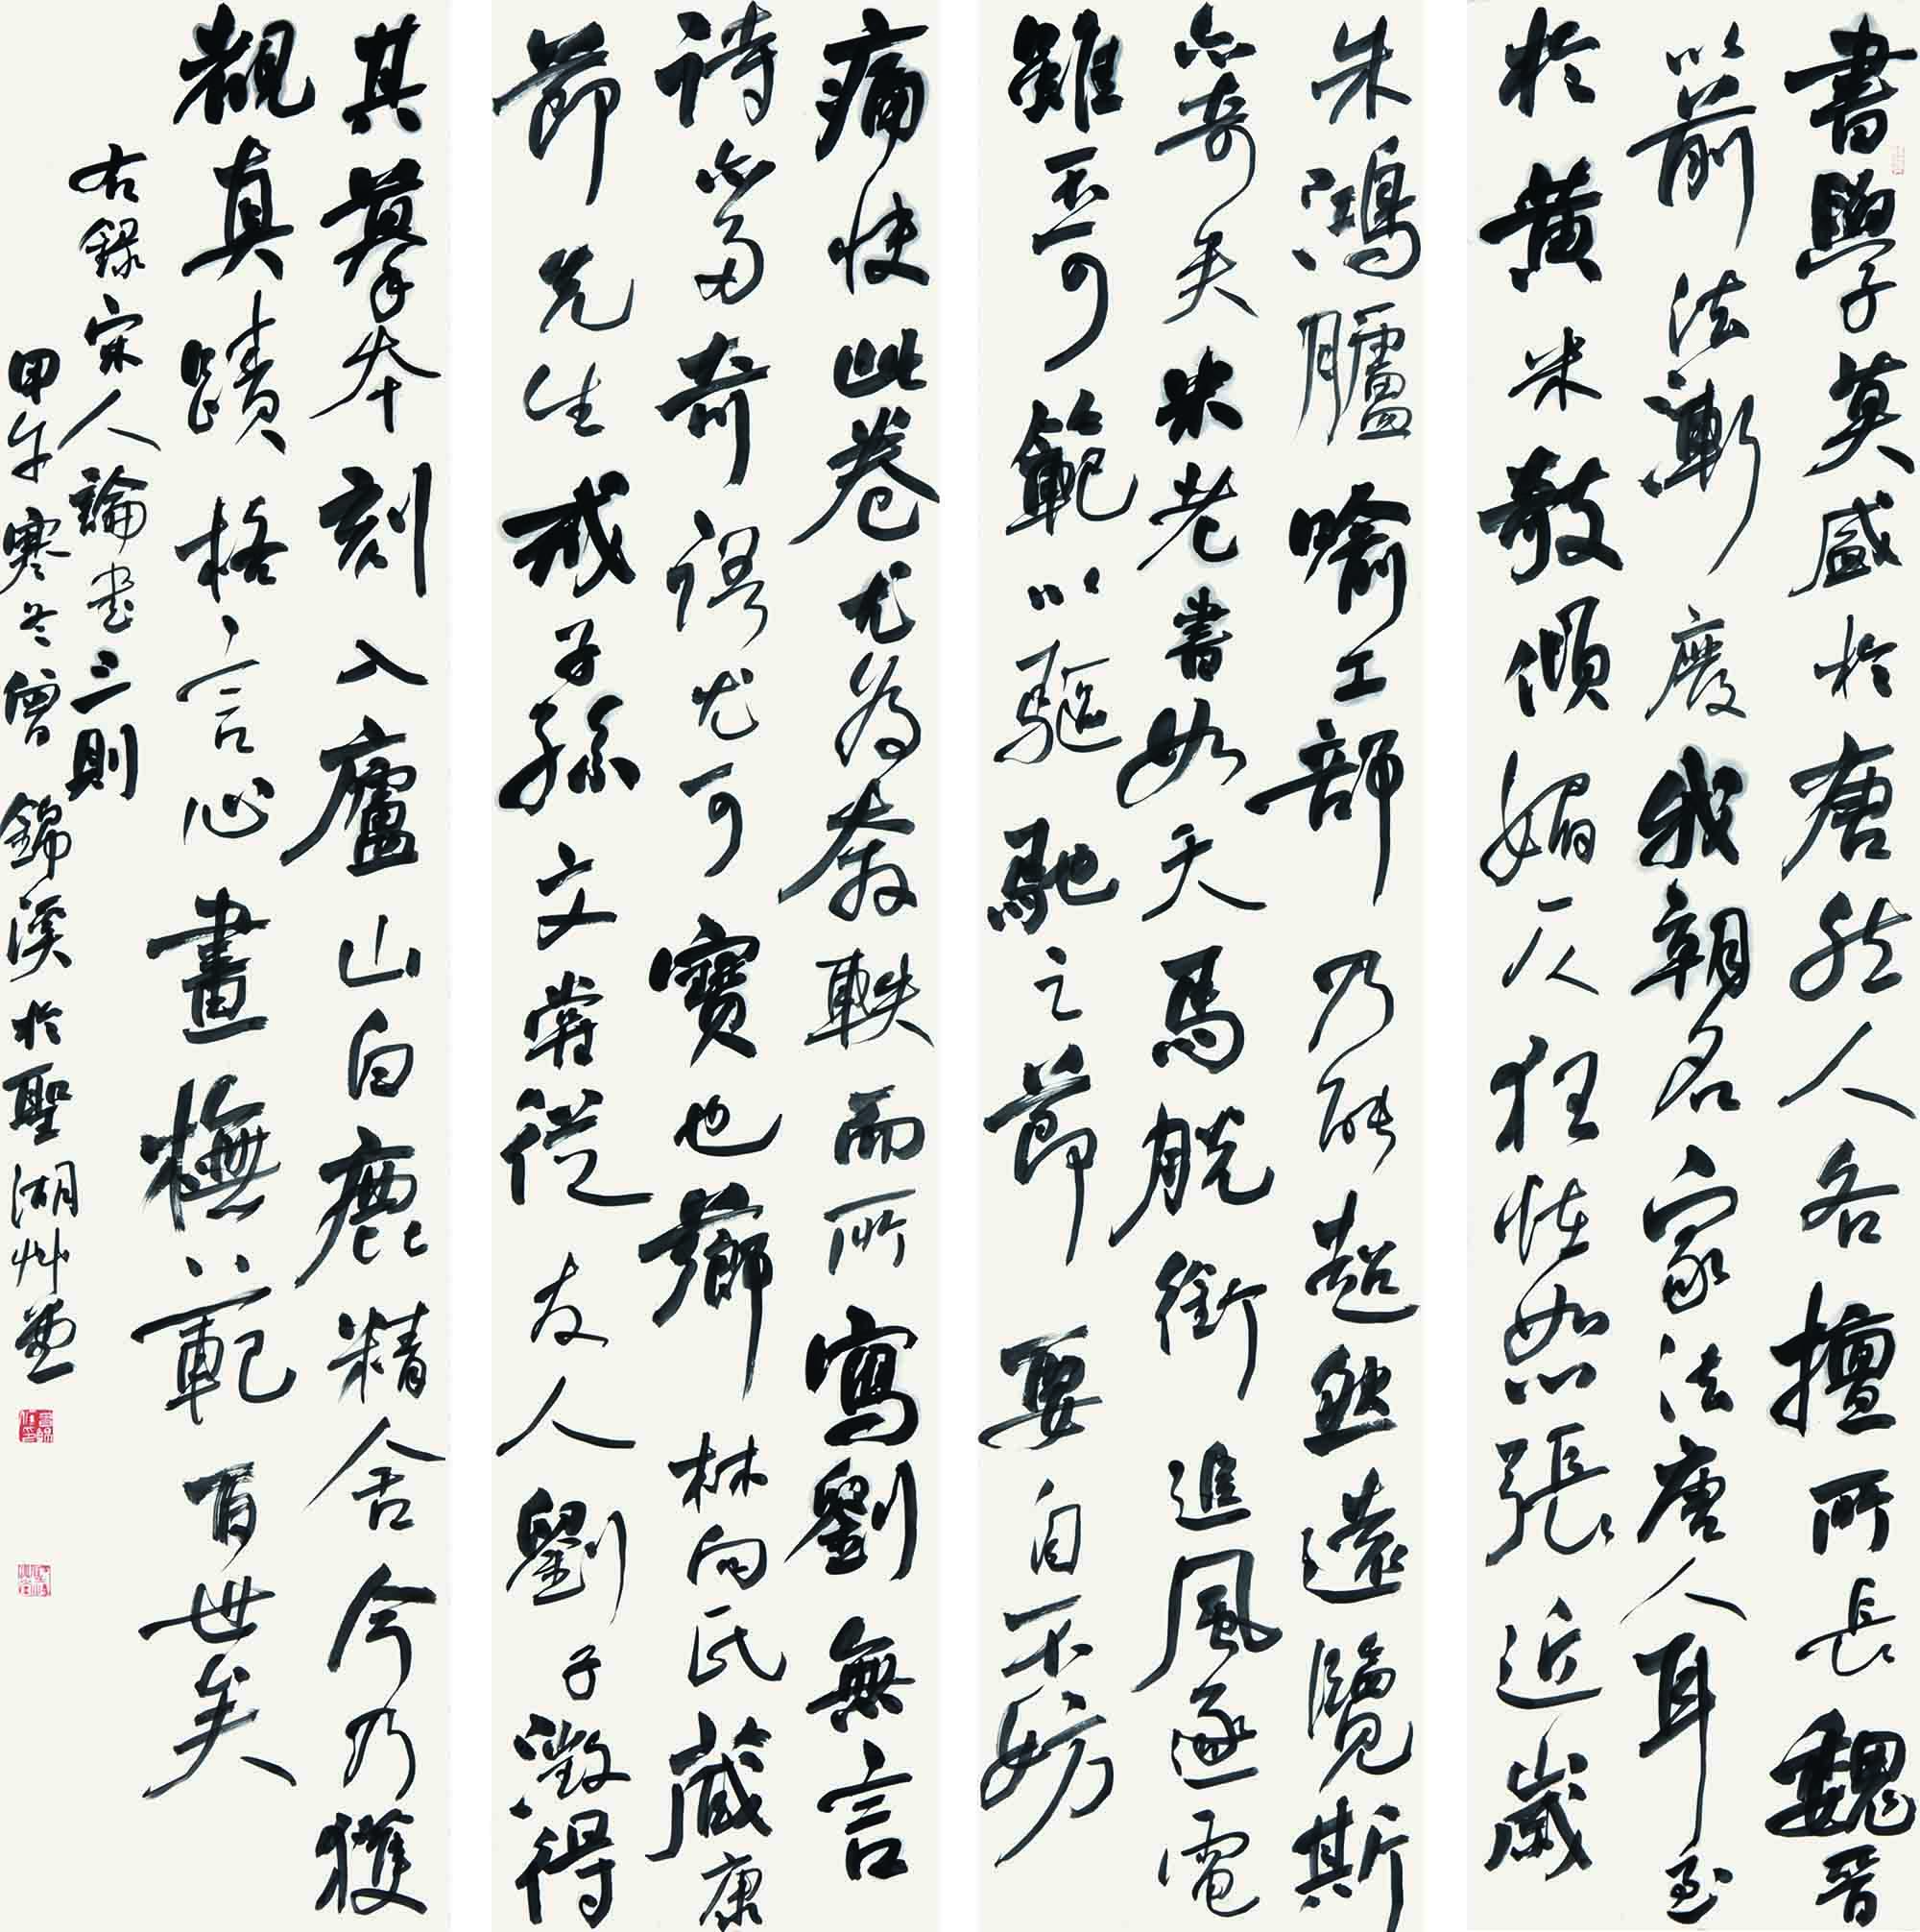 書學莫盛於唐然人各擅所長魏晉
以前法漸廢我朝名家法唐人耳至
於黃米欹傾媚仄狂怪怒張近歲
朱鴻臚喻工部乃能超然遠覽斯
亦奇矣米老書如天馬脫銜追風逐電
雖不可範以驅馳之節要自不妨
痛快此卷尤為奔軼而所寫劉無言
詩亦多奇語尤可寶也薌林向氏藏康
節先生戒子孫文嘗從友人劉子澂得
其摹本刻入廬山白鹿精舍今乃獲
觀真蹟格言心畫橅範百世矣
右錄宋人論書三則
甲午寒冬曾錦溪於聖湖艸